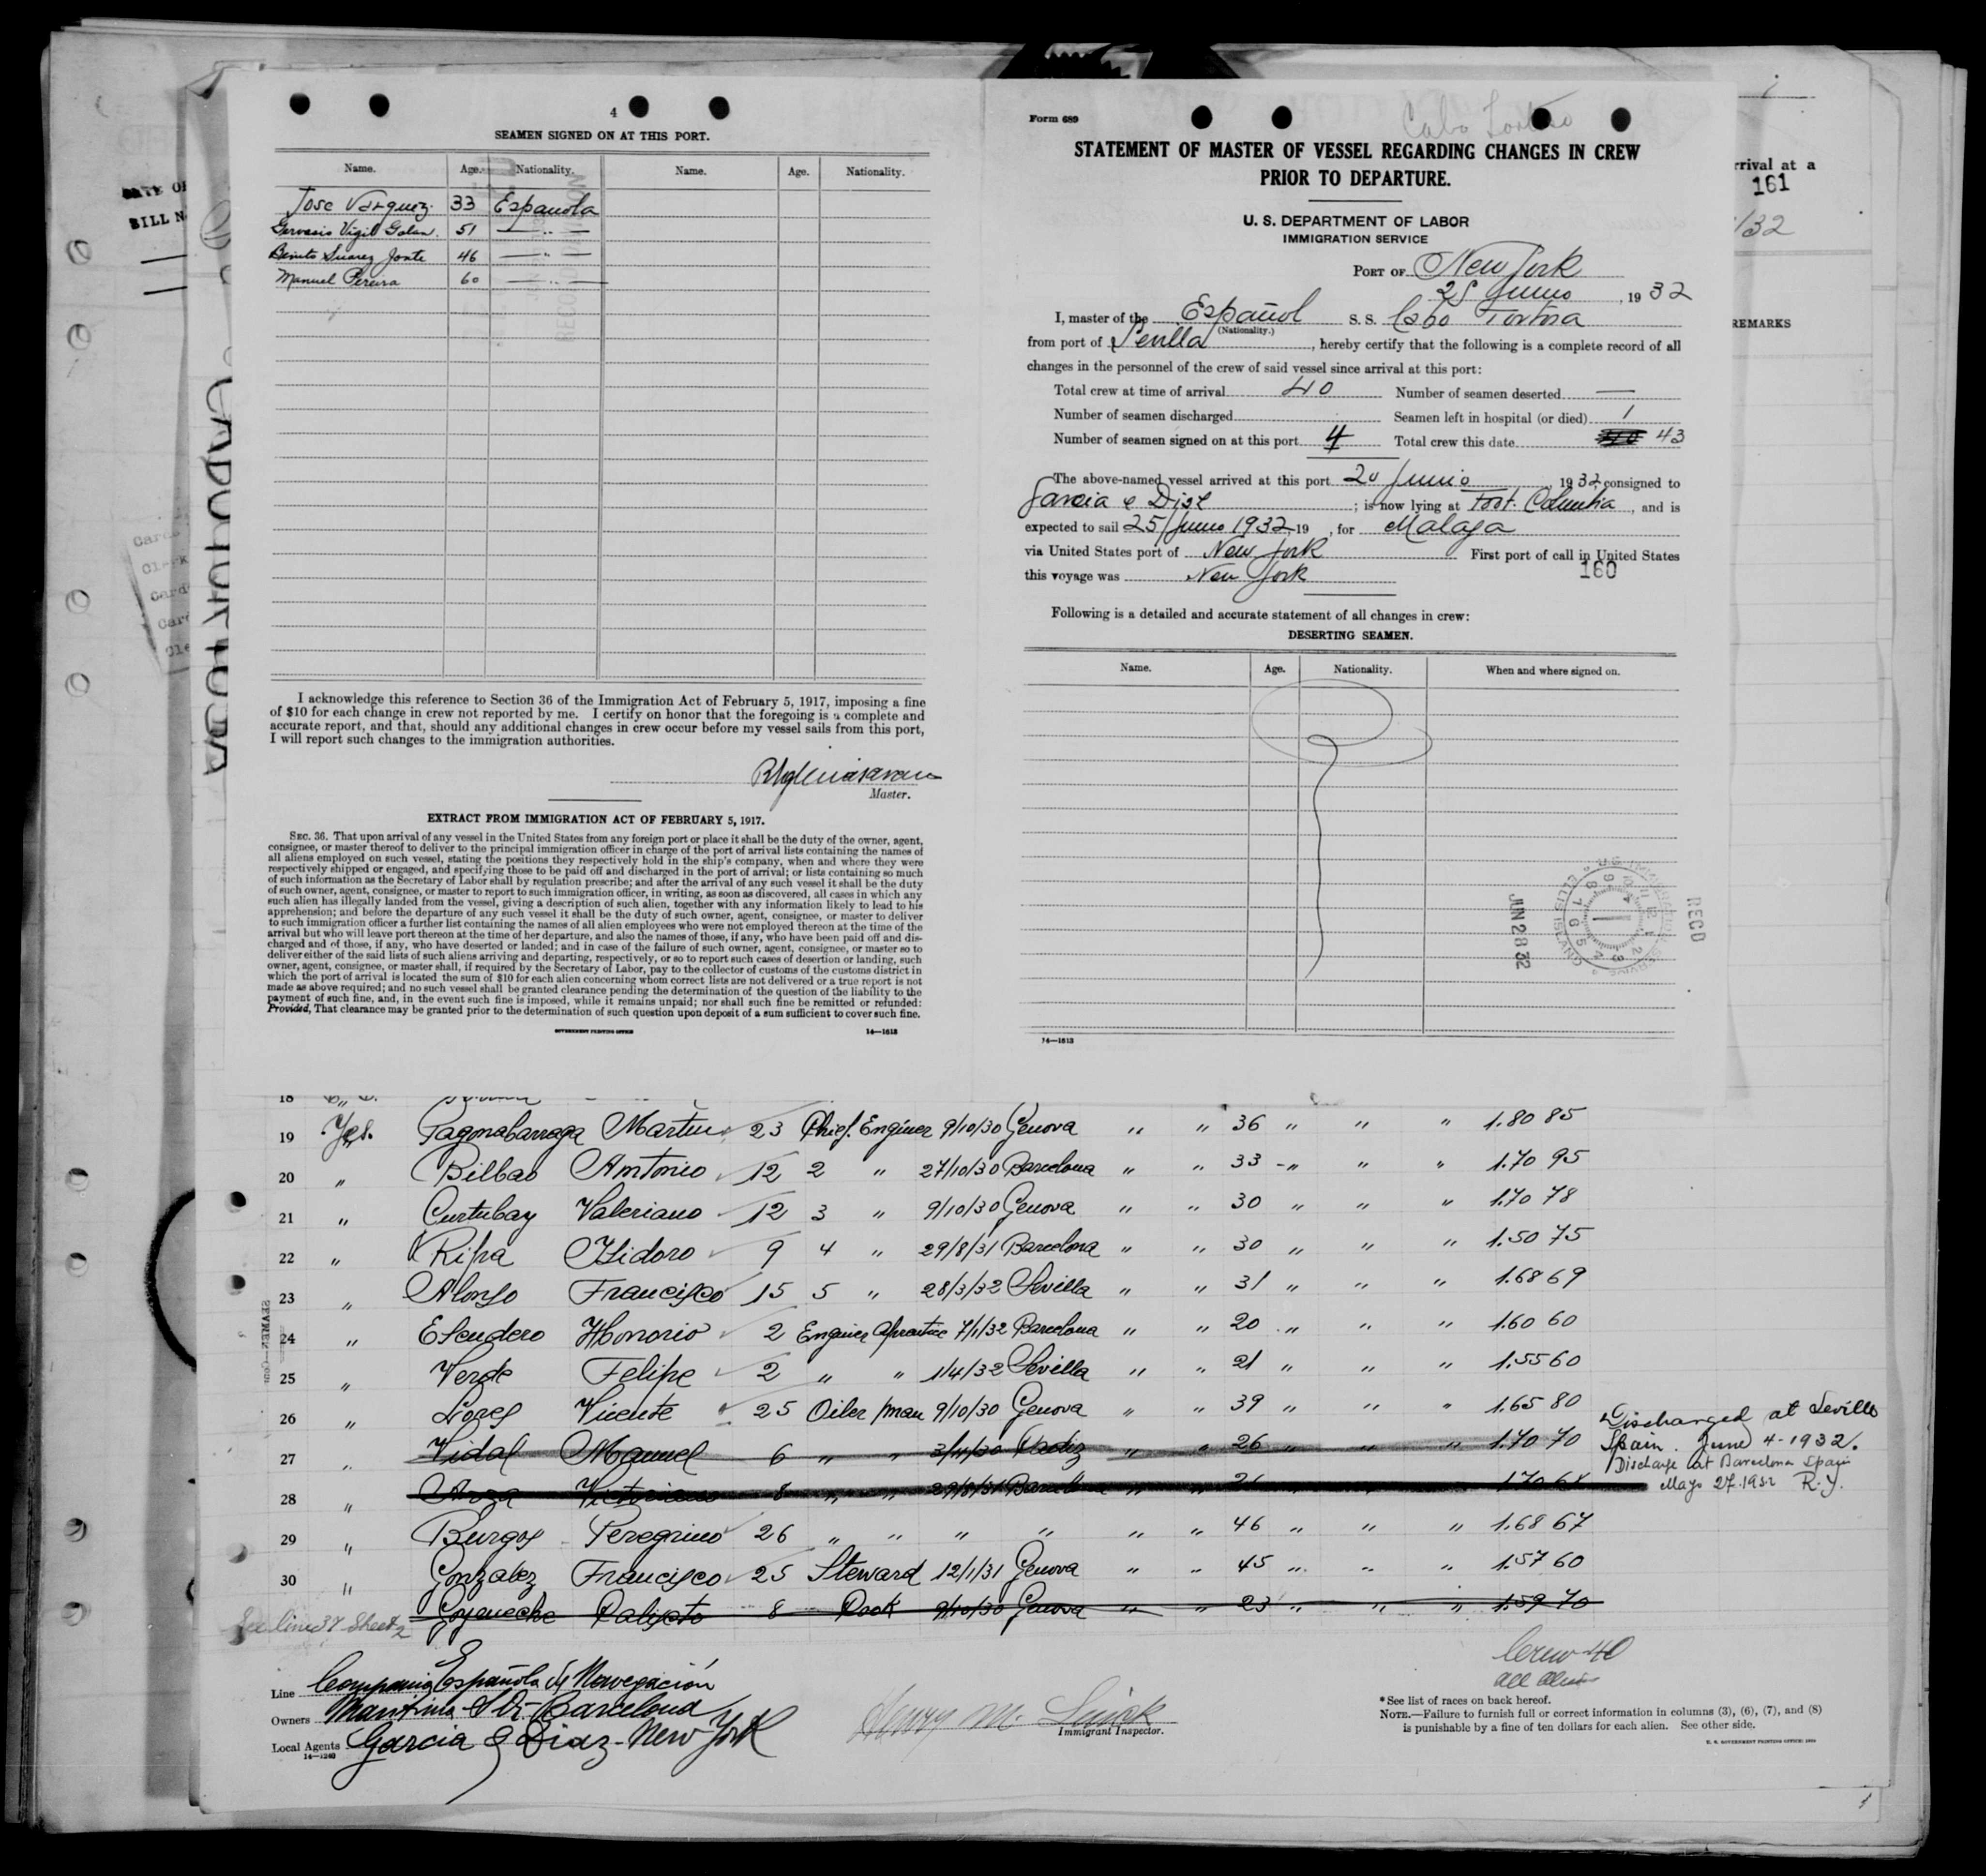 4
SEAMEN SIGNED ON AT THIS PORT.
Name. Age. Nationality. Name. Age. Nationality.
Jose Vazquez. 33 Española
Gervasio Vigil Galan. 51 — " —
Benito Suarez Jonte 46 — " —
Manuel Pereira 60 — " —
I acknowledge this reference to Section 36 of the Immigration Act of February 5, 1917, imposing a fine
of $10 for each change in crew not reported by me. I certify on honor that the foregoing is a complete and
accurate report, and that, should any additional changes in crew occur before my vessel sails from this port,
I will report such changes to the immigration authorities.
Master.
EXTRACT FROM IMMIGRATION ACT OF FEBRUARY 5, 1917.
SEC. 36. That upon arrival of any vessel in the United States from any foreign port or place it shall be the duty of the owner, agent,
consignee, or master thereof to deliver to the principal immigration officer in charge of the port of arrival lists containing the names of
all aliens employed on such vessel, stating the positions they respectively hold in the ship's company, when and where they were
respectively shipped or engaged, and specifying those to be paid off and discharged in the port of arrival; or lists containing so much
of such information as the Secretary of Labor shall by regulation prescribe; and after the arrival of any such vessel it shall be the duty
of such owner, agent, consignee, or master to report to such immigration officer, in writing, as soon as discovered, all cases in which any
such alien has illegally landed from the vessel, giving a description of such alien, together with any information likely to lead to his
apprehension; and before the departure of any such vessel it shall be the duty of such owner, agent, consignee, or master to deliver
to such immigration officer a further list containing the names of all alien employees who were not employed thereon at the time of the
arrival but who will leave port thereon at the time of her departure, and also the names of those, if any, who have been paid off and dis-
charged and of those, if any, who have deserted or landed; and in case of the failure of such owner, agent, consignee, or master so to
deliver either of the said lists of such aliens arriving and departing, respectively, or so to report such cases of desertion or landing, such
owner, agent, consignee, or master shall, if required by the Secretary of Labor, pay to the collector of customs of the customs district in
which the port of arrival is located the sum of $10 for each alien concerning whom correct lists are not delivered or a true report is not
made as above required; and no such vessel shall be granted clearance pending the determination of the question of the liability to the
payment of such fine, and, in the event such fine is imposed, while it remains unpaid; nor shall such fine be remitted or refunded:
Provided, That clearance may be granted prior to the determination of such question upon deposit of a sum sufficient to cover such fine.
GOVERNMENT PRINTING OFFICE 14—1613
Form 689
Cabo Tortosa
STATEMENT OF MASTER OF VESSEL REGARDING CHANGES IN CREW
PRIOR TO DEPARTURE.
U. S. DEPARTMENT OF LABOR
IMMIGRATION SERVICE
PORT OF New York
25 Junio, 1932
I, master of the Español S. S. Cabo Tortosa
(Nationality.)
from port of Sevilla, hereby certify that the following is a complete record of all
changes in the personnel of the crew of said vessel since arrival at this port:
Total crew at time of arrival 40 Number of seamen deserted —
Number of seamen discharged Seamen left in hospital (or died) 1
Number of seamen signed on at this port 4 Total crew this date 40 43
The above-named vessel arrived at this port 20 Junio, 1932, consigned to
Garcia e Diaz; is now lying at Foot. Columbia, and is
expected to sail 25/Junio 1932 19 , for Malaga
via United States port of New York First port of call in United States
this voyage was New York 160
Following is a detailed and accurate statement of all changes in crew:
DESERTING SEAMEN.
Name. Age. Nationality. When and where signed on.
JUN 28 32
RECD
14—1613
rrival at a
161
/32
REMARKS
DATE OF
BILL N
18
19 Yes. Gagonabarraga Martin 23 Chief. Enginer 9/10/30 Genova " " 36 " " " 1.80 85
20 " Bilbao Antonio 12 2 " 27/10/30 Barcelona " " 33 " " " 1.70 95
21 " Curtubay Valeriano 12 3 " 9/10/30 Genova " " 30 " " " 1.70 78
22 " Ripa Isidoro 9 4 " 29/8/31 Barcelona " " 30 " " " 1.50 75
23 " Alonso Francisco 15 5 " 28/3/32 Sevilla " " 31 " " " 1.68 69
24 " Escudero Honorio 2 Enginer Aprentice 7/1/32 Barcelona " " 20 " " " 1.60 60
25 " Verde Felipe 2 " " 1/4/32 Sevilla " " 21 " " " 1.55 60
26 " Lores Vicente 25 Oiler/man 9/10/30 Genova " " 39 " " " 1.65 80
27 " Vidal Manuel 6 " " Cadiz " " 26 " " " 1.70 70 Discharged at Sevilla Spain. June 4-1932.
28 " 8 " " 29/8/31 Barcelona " " 1.70 68 Discharge at Barcelona Spain Mayo 27.1932 R.Y.
29 " Burgos Peregrino 26 " " " " " " 46 " " " 1.68 67
30 " Gonzalez Francisco 25 Steward 12/1/31 Genova " " 45 " " " 1.57 60
See line 37 Sheet 2 Goyeneche Calixto 8 Cook 9/10/30 Genova " " 23 " " " 1.59 70
Crew 40
All Aliens
Line Compania Española de Navegación
Owners Maritima-S.A.-Barcelona
Local Agents Garcia & Diaz-New York
14—1240
Immigrant Inspector.
*See list of races on back hereof.
NOTE.—Failure to furnish full or correct information in columns (3), (6), (7), and (8)
is punishable by a fine of ten dollars for each alien. See other side.
U. S. GOVERNMENT PRINTING OFFICE: 1930